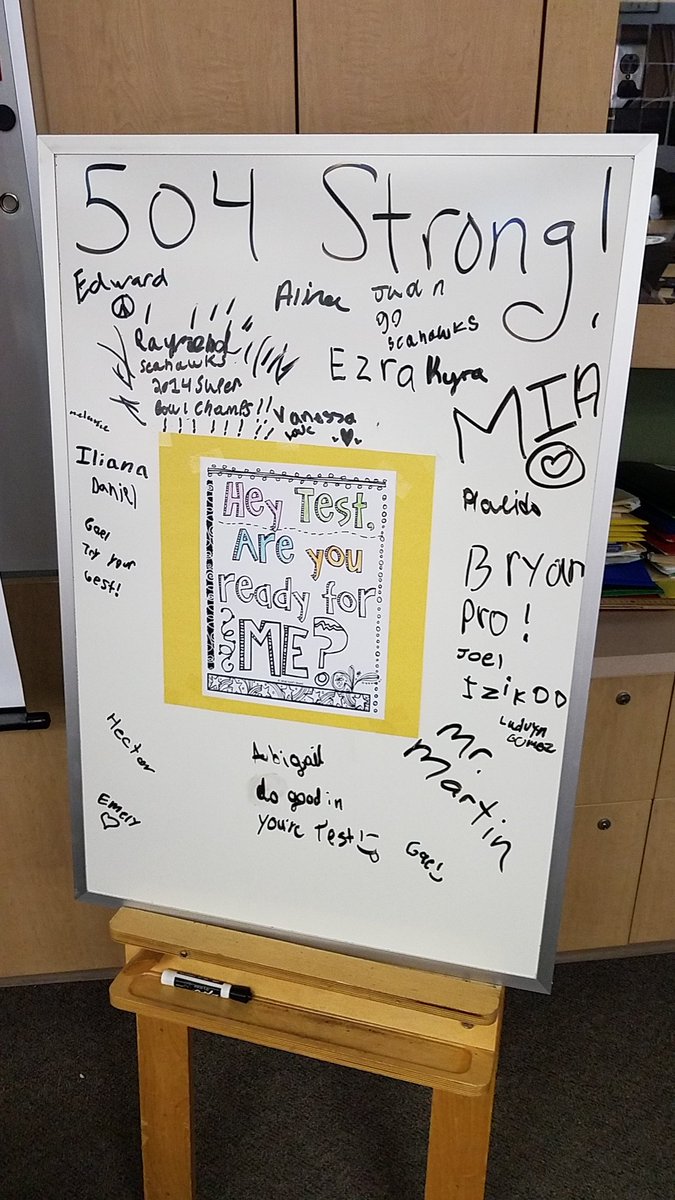 504 Strong!
Edward
Alina
Judn
99
Seahawks
Raymond
Seahawks
2014 Super
Bowl Champs!!
! ! ! ! ! ! !
Ezra
Kyra
MIA
Vanessa
Love
Iliana
Daniel
Placido
Gael
Try your
best!
Hey Test,
Are you
ready for
ME?
Bryan
pro!
Joel
IzikDD
Ludvyn
Gomez
Mr.
Martin
Hector
Emely
Abigail
do good in
you're Test!
Gael